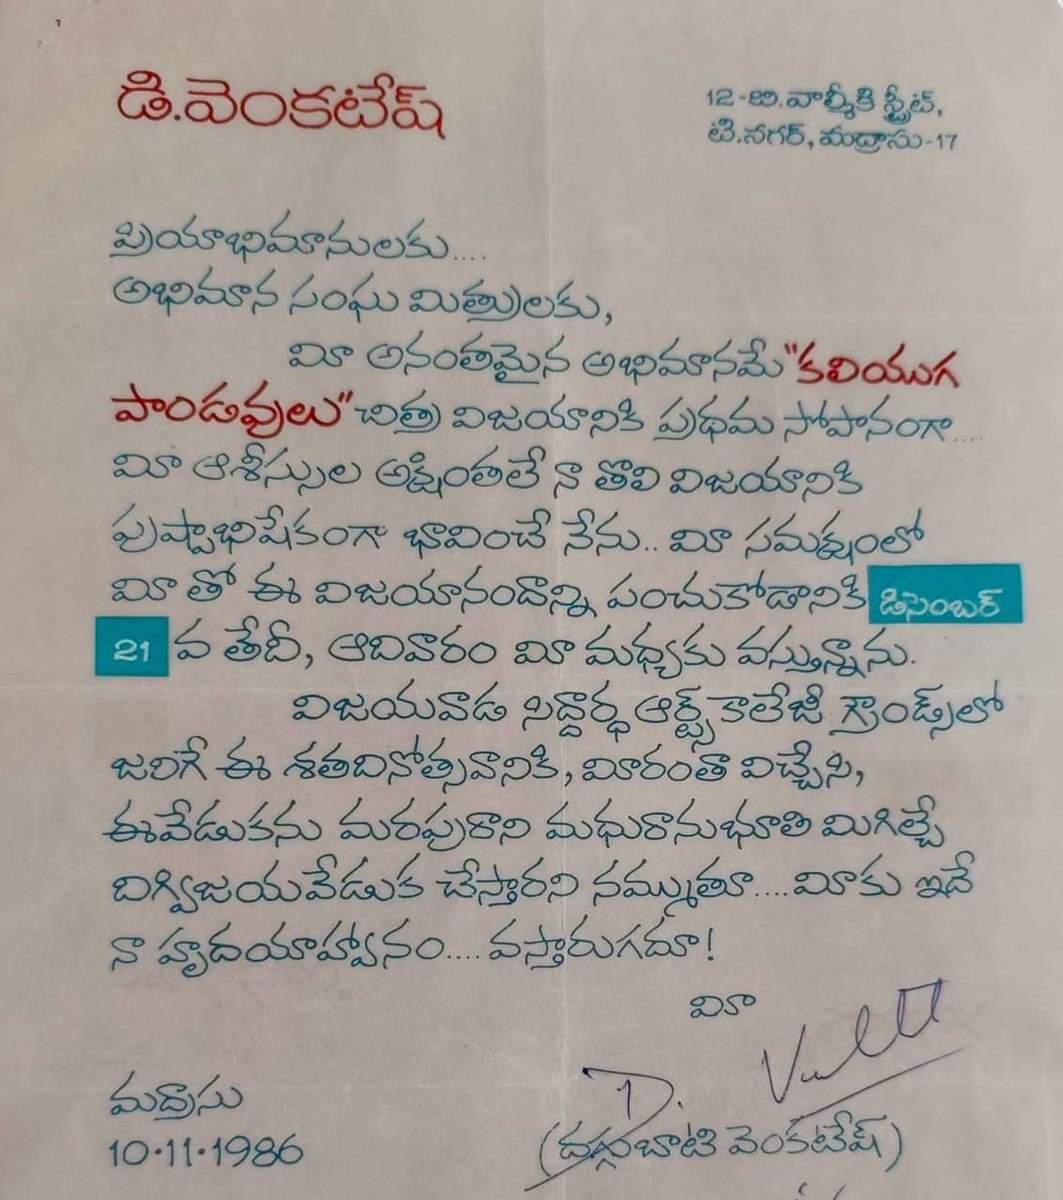 డి.వెంకటేష్
12-బి.వాల్మీకి స్ట్రీట్,
టి.నగర్, మద్రాసు-17
ప్రియాభిమానులకు....
అభిమాన సంఘ మిత్రులకు,
మీ అనంతమైన అభిమానమే "కలియుగ
పాండవులు" చిత్ర విజయానికి ప్రథమ సోపానంగా....
మీ ఆశీస్సుల అక్షింతలే నా తొలి విజయానికి
పుష్పాభిషేకంగా భావించే నేను.. మీ సమక్షంలో
మీ తో ఈ విజయానందాన్ని పంచుకోడానికి డిసెంబర్
21 వ తేదీ, ఆదివారం మీ మధ్యకు వస్తున్నాను.
విజయవాడ సిద్దార్థ ఆర్ట్స్ కాలేజీ గ్రౌండ్స్‌లో
జరిగే ఈ శతదినోత్సవానికి, మీరంతా విచ్చేసి,
ఈవేడుకను మరపురాని మధురానుభూతి మిగిల్చే
దిగ్విజయవేడుక చేస్తారని నమ్ముతూ.... మీకు ఇదే
నా హృదయాహ్వానం.... వస్తారుగదూ!
మీ
D. Venkatesh
మద్రాసు
10.11.1986
(దగ్గుబాటి వెంకటేష్)